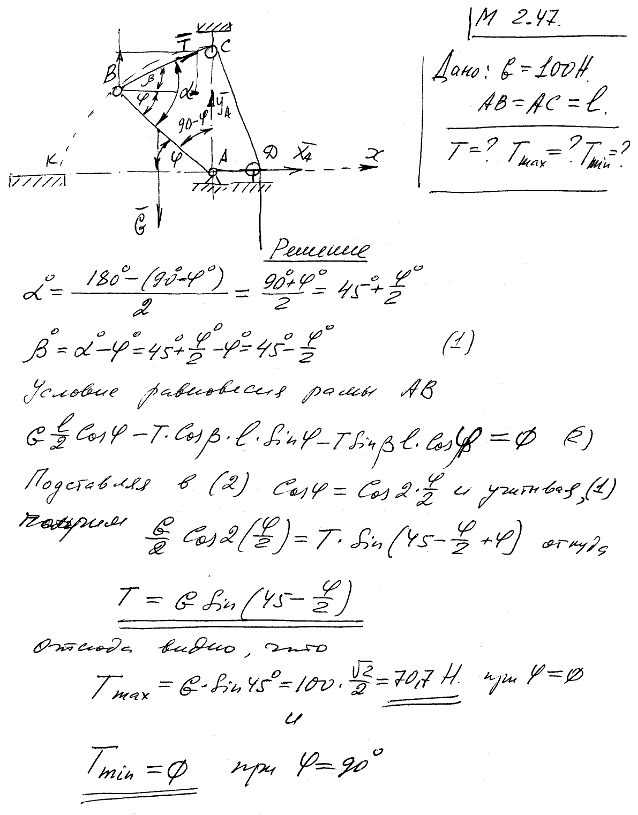 М 2.47.
Дано: G = 100Н.
AB = AC = l.
T = ? Tmax = ? Tmin = ?
T̄ C
B β
φ α ȳA
90-φ
K φ A D X̄A x
Ḡ
Решение
α° = (180° - (90° - φ°))/2 = (90° + φ°)/2 = 45° + φ°/2
β° = α° - φ° = 45° + φ°/2 - φ° = 45° - φ°/2 (1)
Условие равновесия рамы AB
G l/2 Cosφ - T·Cosβ·l·Sinφ - T Sinβ l·Cosφ = 0 (2)
Подставляя в (2) Cosφ = Cos2·φ/2 и учитывая, (1)
получим G/2 Cos2(φ/2) = T·Sin(45 - φ/2 + φ) откуда
T = G Sin(45 - φ/2)
Отсюда видно, что
Tmax = G·Sin45° = 100·√2/2 = 70,7 Н. при φ = 0
и
Tmin = 0 при φ = 90°